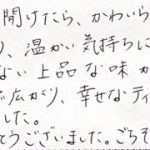 開けたら、かわいら
り、温かい気持ちに
ない上品な味か
広がり、幸せなティ
した。
とうございました。ごちそ